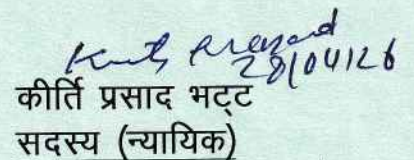 Kirti Prasad
28/04/26
कीर्ति प्रसाद भट्ट
सदस्य (न्यायिक)